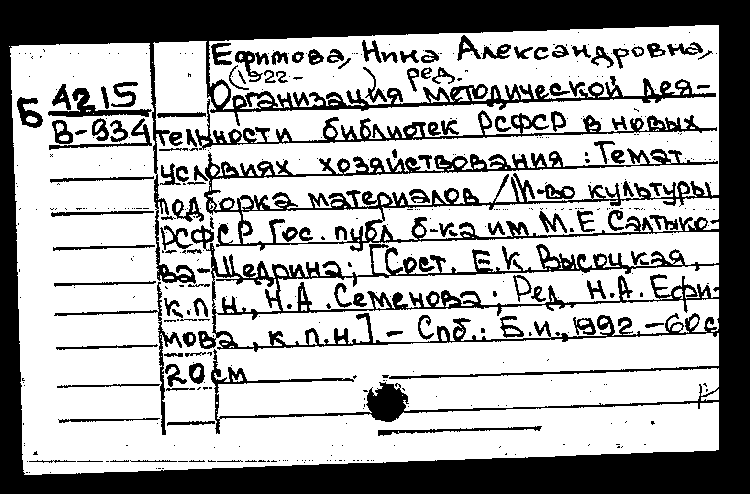 Ефимова, Нина Александровна,
(1922- ) ред.
Б 4215 Организация методической дея-
В-934 тельности библиотек РСФСР в новых
условиях хозяйствования : Темат.
подборка материалов / М-во культуры
РСФСР, Гос. публ. б-ка им. М.Е. Салтыко-
ва-Щедрина; [Сост. Е.К. Высоцкая,
к.п.н., Н.А. Семенова; Ред. Н.А. Ефи-
мова, к.п.н.]. - Спб.: Б.и., 1992. - 60с
20см